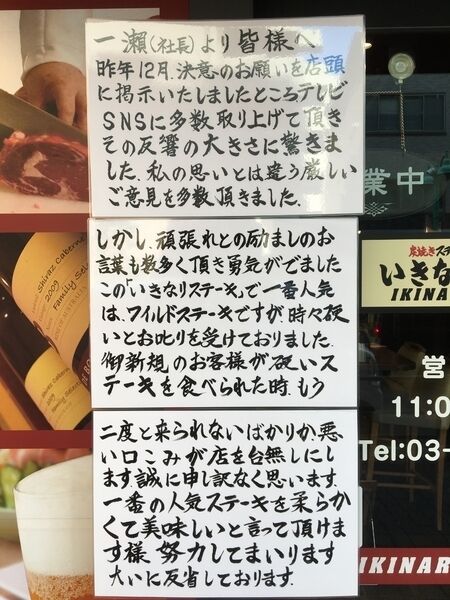 一瀬(社長)より皆様へ
昨年12月、決意のお願いを店頭
に掲示いたしましたところテレビ
SNSに多数取り上げて頂き
その反響の大きさに驚きま
した。私の思いとは違う厳しい
ご意見を多数頂きました。
しかし、頑張れとの励ましのお
言葉も数多く頂き勇気がでました
この「いきなりステーキ」で一番人気
は、ワイルドステーキですが時々硬
いとお叱りを受けておりました。
御新規のお客様が硬いス
テーキを食べられた時、もう
二度と来られないばかりか、悪
い口こみが店を台無しにし
ます誠に申し訳なく思います。
一番の人気ステーキを柔らか
くて美味しいと言って頂けま
す様 努力してまいります
大いに反省しております。
業中
炭焼きステ
いきな
IKINAR
営
11:0
Tel:03-
IKINAR
Shiraz Caberne
2009
Family Sele
2009